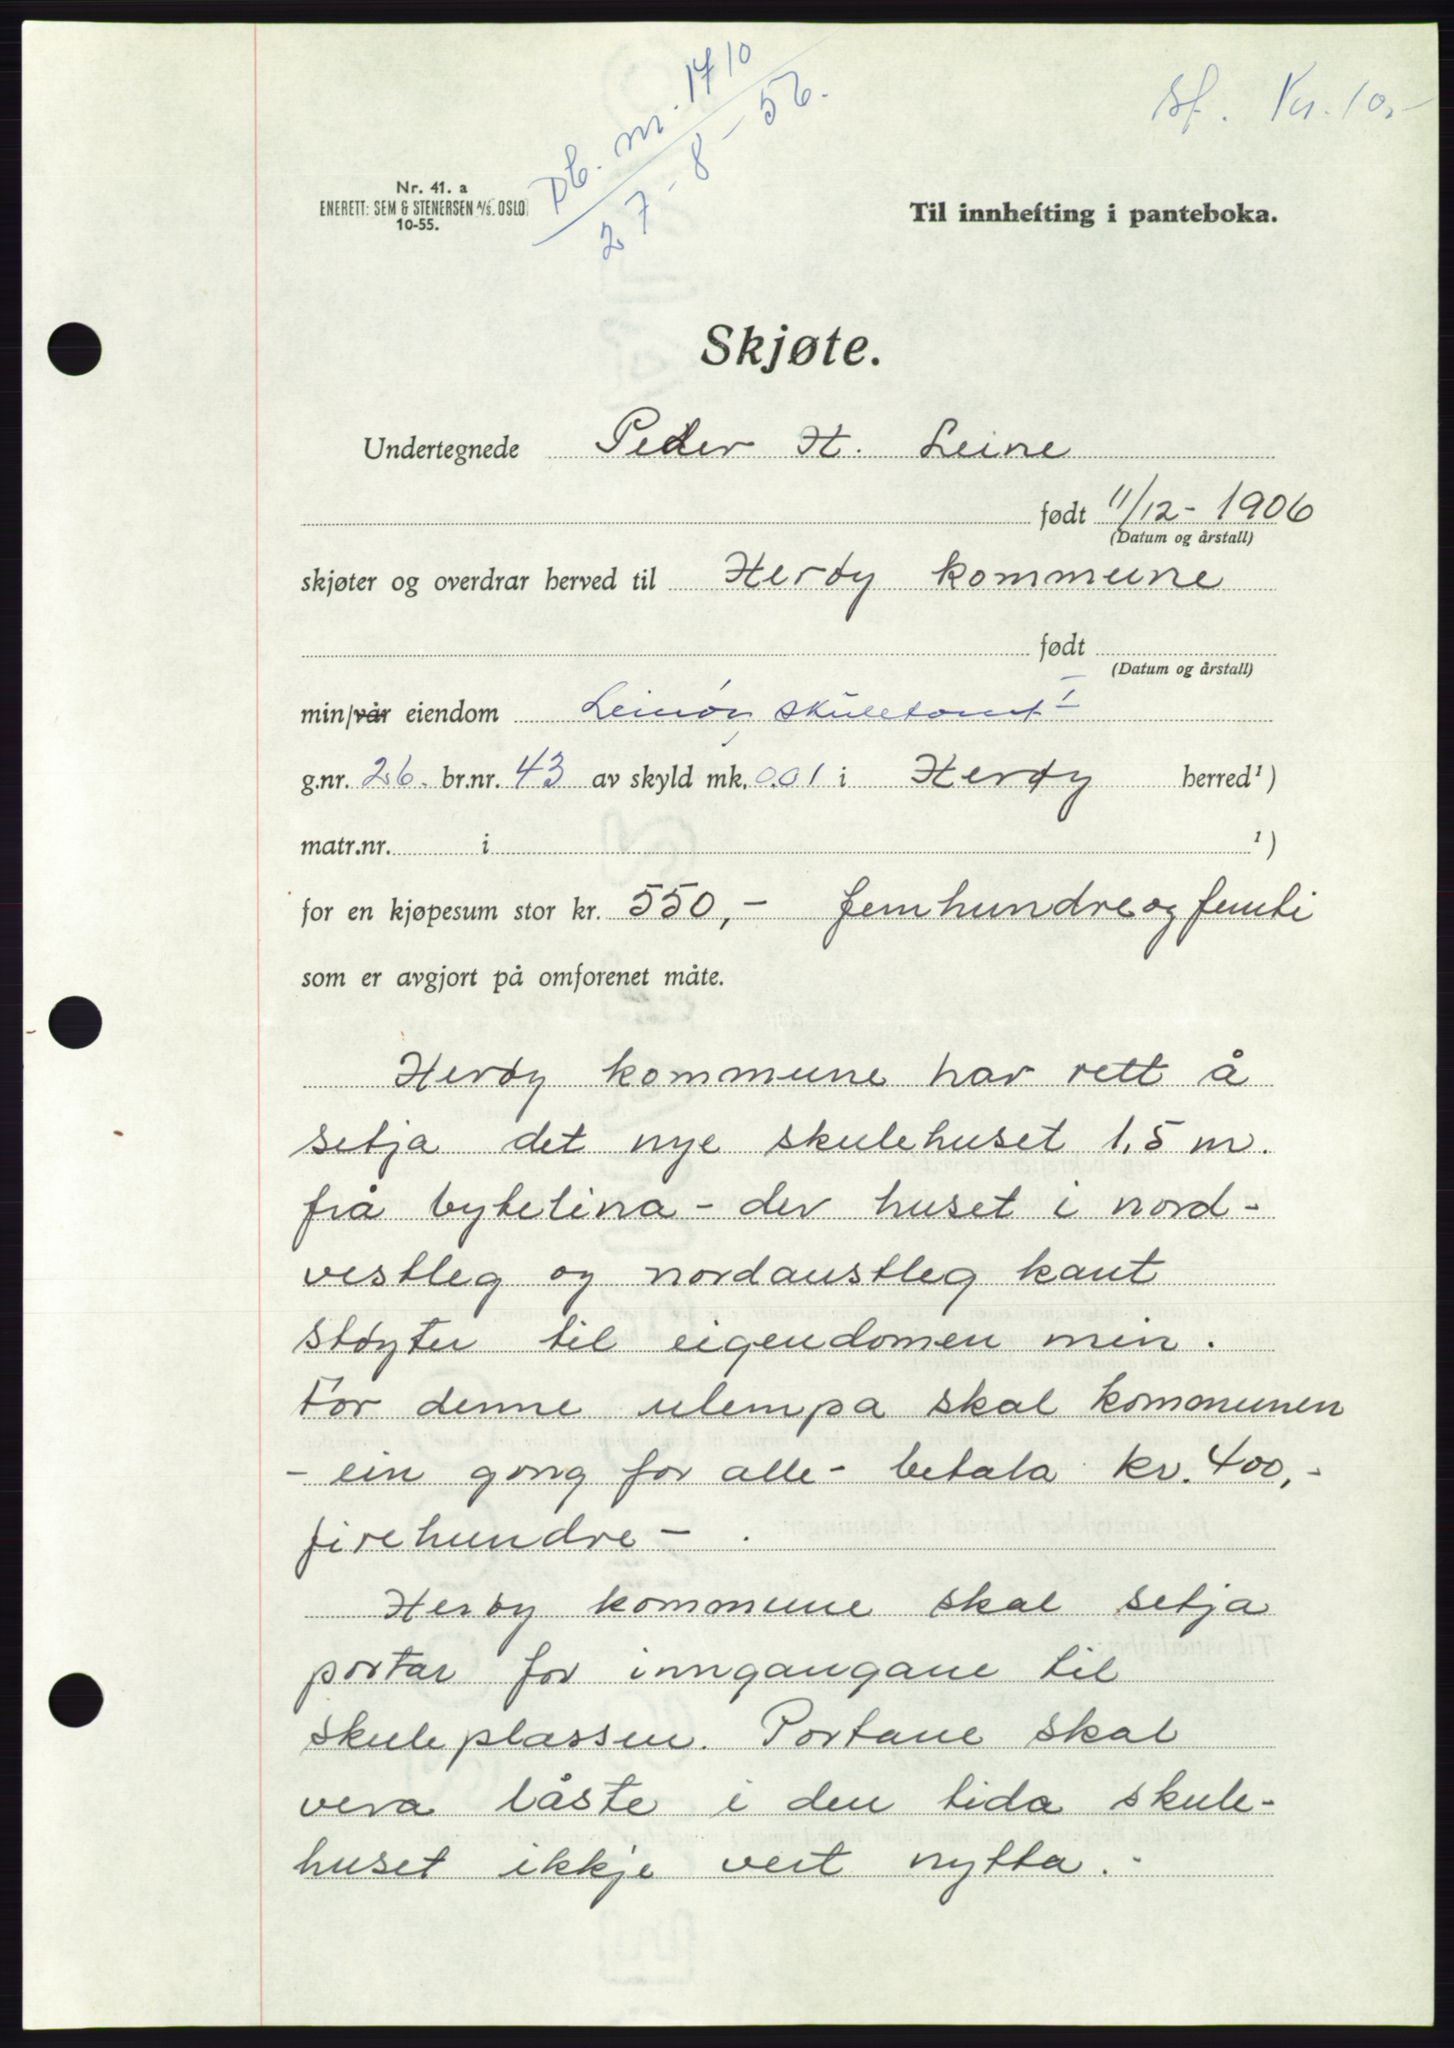 Db. nr. 1710
27-8-56.
sf. Kr. 10,-
Nr. 41. a
ENERETT: SEM & STENERSEN A/S. OSLO
10-55.
Til innhefting i panteboka.
Skjøte.
Undertegnede Peder H. Leine
født 11/12- 1906
(Datum og årstall)
skjøter og overdrar herved til Herøy kommune
født
(Datum og årstall)
min/vår eiendom Leinøy skuletomt I
g.nr. 26. br.nr. 43 av skyld mk. 0.01 i Herøy herred¹)
matr.nr. i ¹)
for en kjøpesum stor kr. 550,- femhundreogfemti
som er avgjort på omforenet måte.
Herøy kommune har rett å
setja det nye skulehuset 1,5 m.
frå bytelina - der huset i nord-
vestleg og nordaustleg kant
støyter til eigendomen min.
For denne ulempa skal kommunen
- ein gong for alle - betala kr. 400,-
firehundre - .
Herøy kommune skal setja
portar for inngangane til
skuleplassen. Portane skal
vera låste i den tida skule-
huset ikkje vert nytta. -